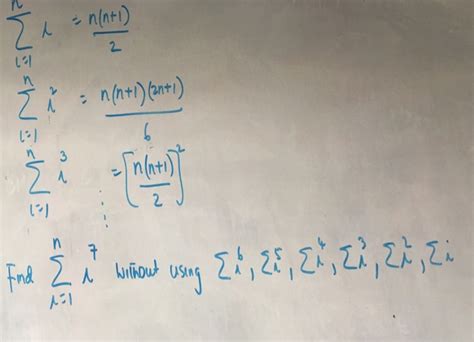 \sum_{i=1}^{n} i = \frac{n(n+1)}{2}
\sum_{i=1}^{n} i^2 = \frac{n(n+1)(2n+1)}{6}
\sum_{i=1}^{n} i^3 = \left[\frac{n(n+1)}{2}\right]^2
⋮
Find \sum_{i=1}^{n} i^7 without using \sum i^6, \sum i^5, \sum i^4, \sum i^3, \sum i^2, \sum i